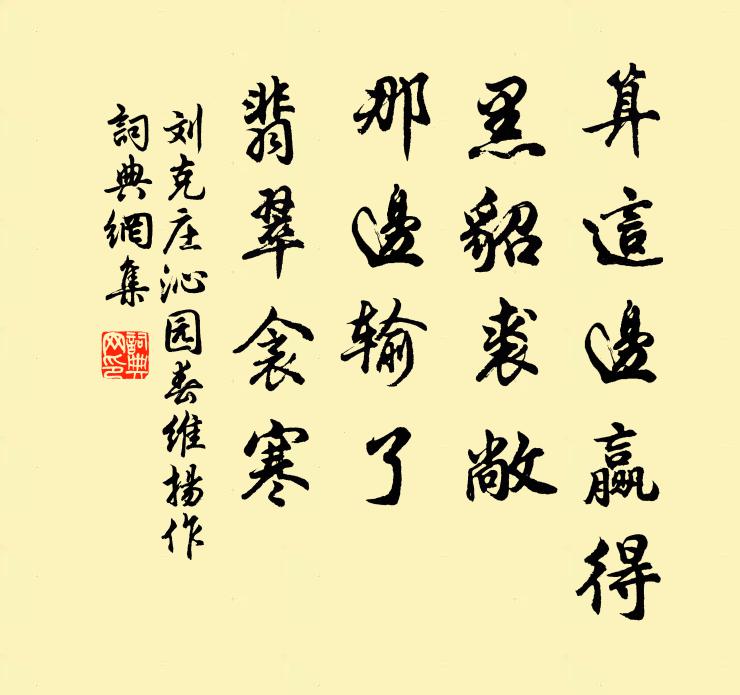 算這邊贏得
黑貂裘敞
那邊输了
翡翠衾寒
刘克庄沁园春维揚作
詞典網集
詞典
网印